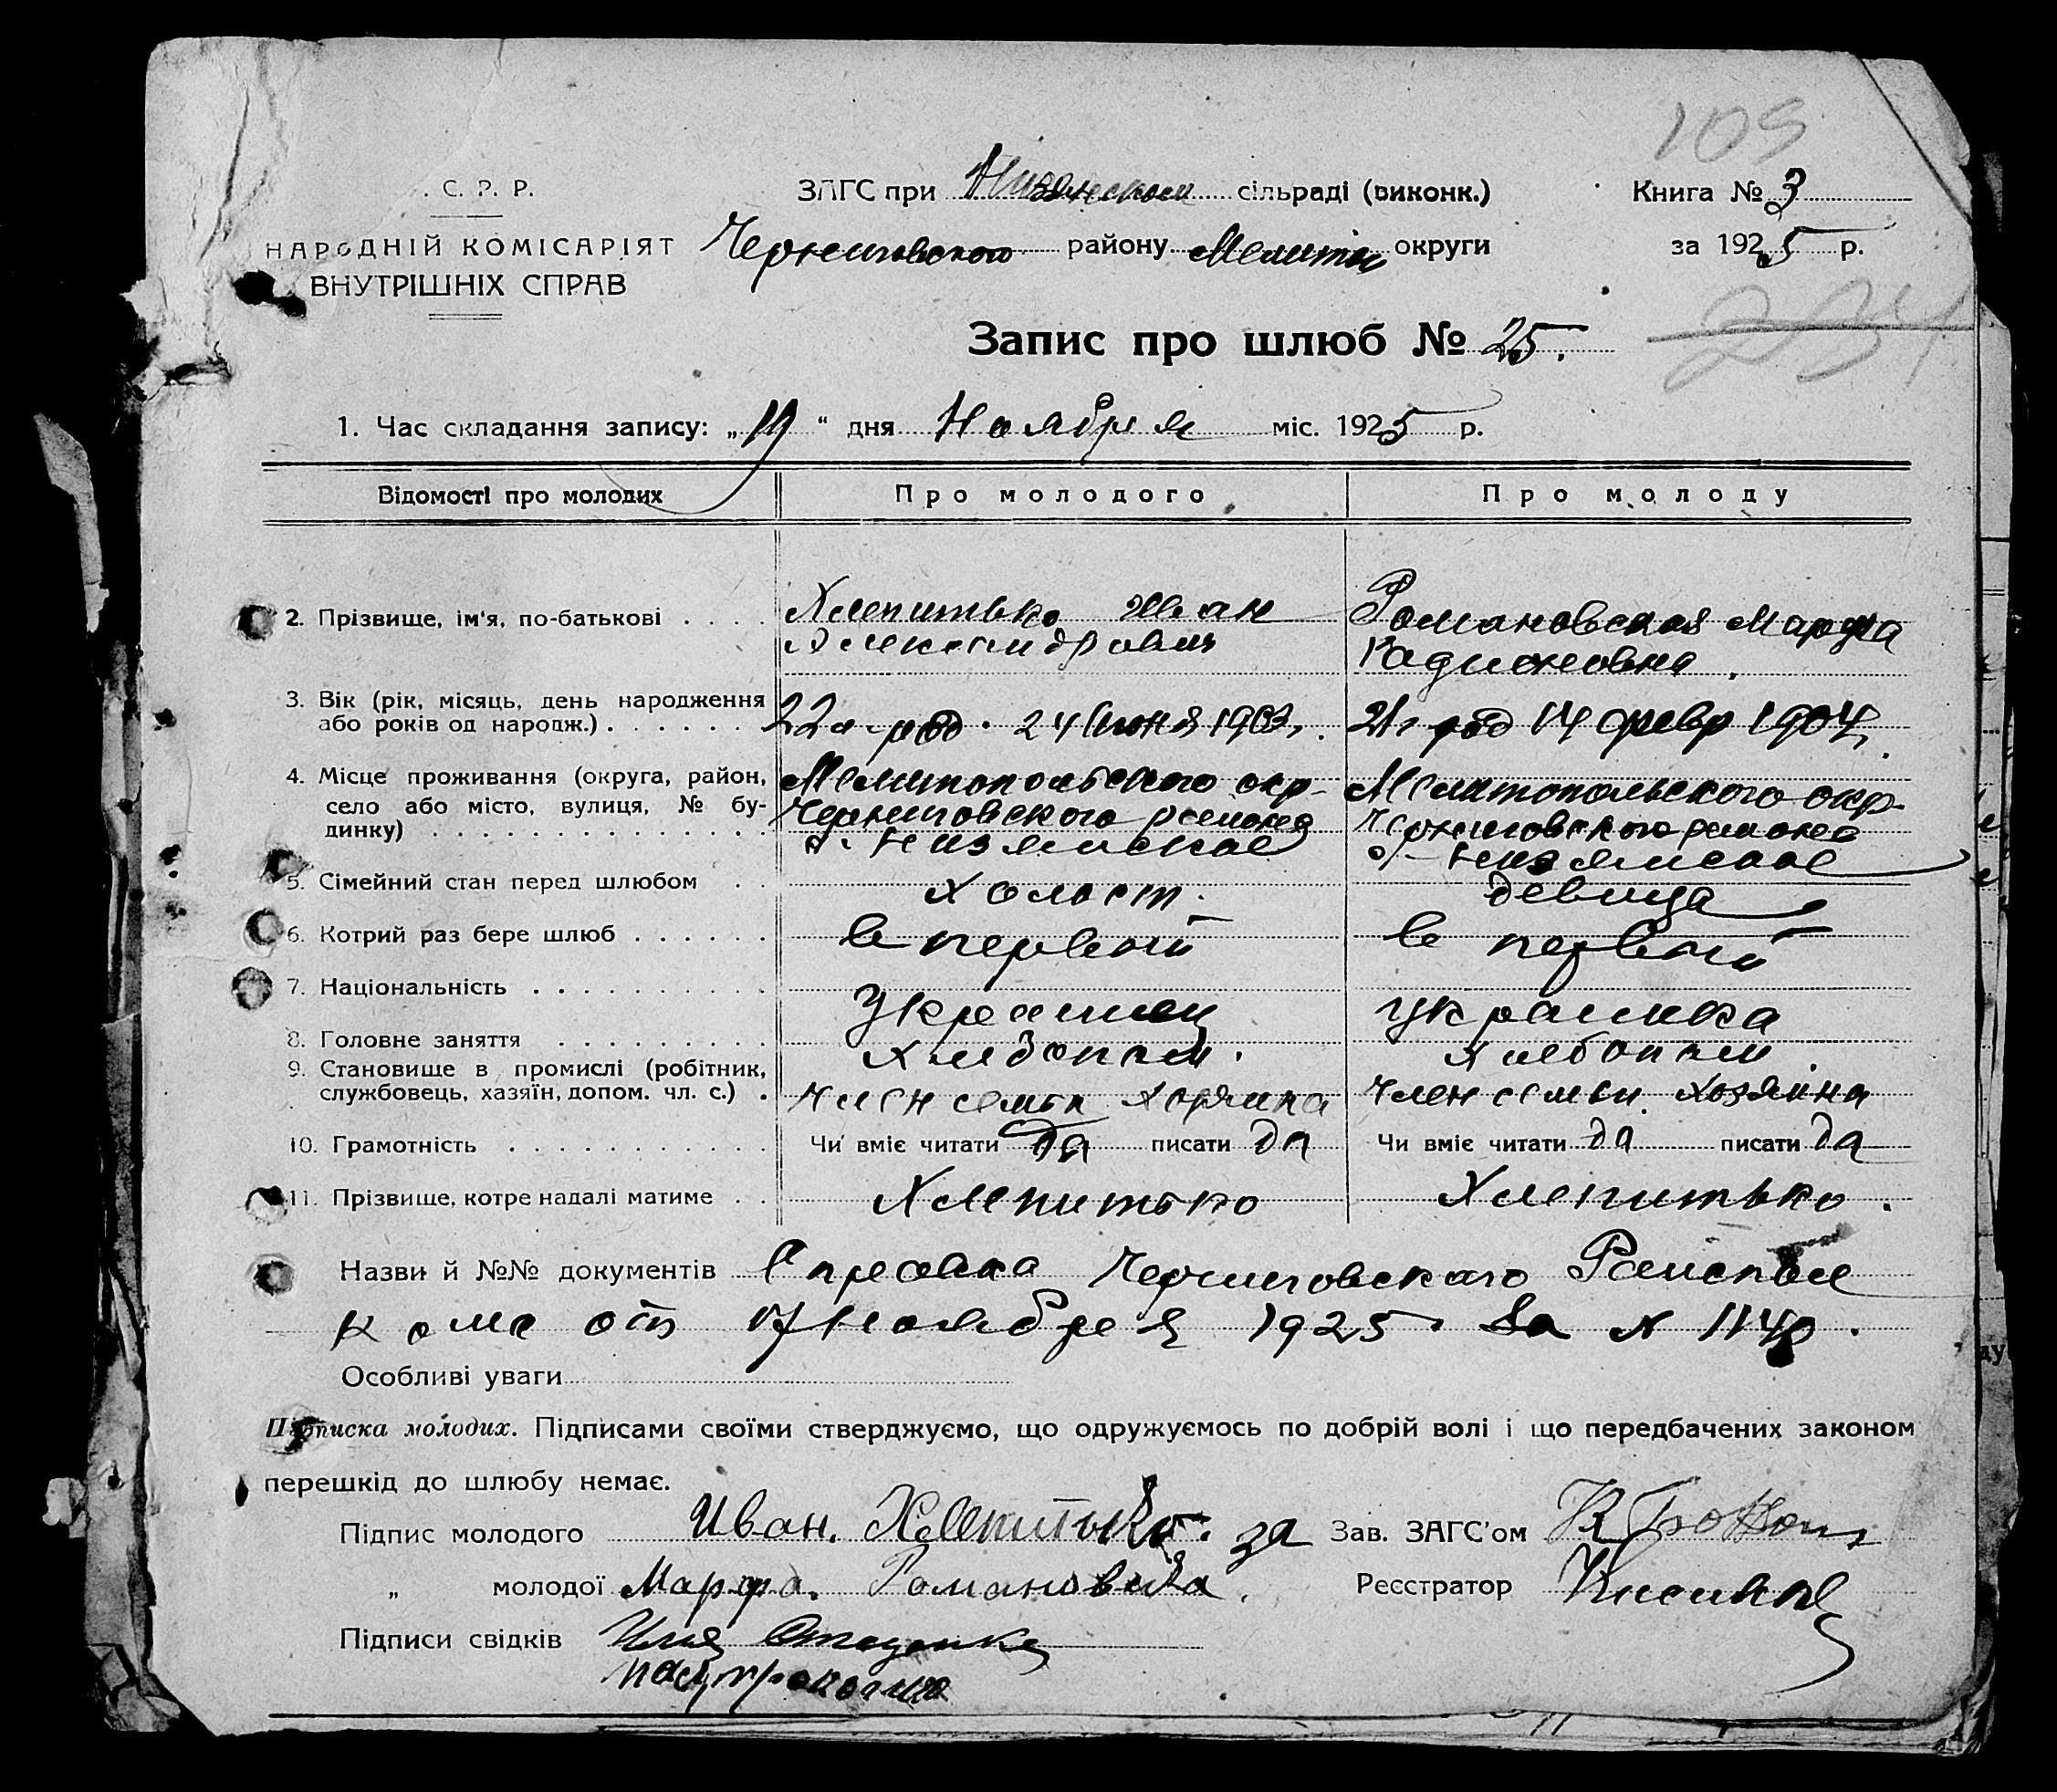 105
. С. Р. Р.
ЗАГС при Низянском сільраді (виконк.)
Книга № 3
НАРОДНІЙ КОМІСАРІЯТ
Черниговского району Мелитоп округи
за 1925 р.
ВНУТРІШНІХ СПРАВ
Запис про шлюб № 25.
234
1. Час складання запису: „19“ дня Ноября міс. 1925 р.
Відомості про молодих
Про молодого
Про молоду
2. Прізвище, ім'я, по-батькові . . . .
Хлепитько Иван
Александрович
Романовская Марфа
Радионовна.
3. Вік (рік, місяць, день народження
або років од народж.) . . . . . . .
22 л род. 24 Июня 1903 г.
21 г род 14 февр 1904 г.
4. Місце проживання (округа, район,
село або місто, вулиця, № бу-
динку) . . . . . . . . . . . . . .
Мелитопольского окр-
Черниговского района
с. Низянское
Мелитопольского окр-
Черниговского района
с. Низянское
5. Сімейний стан перед шлюбом . .
холост.
девица
6. Котрий раз бере шлюб . . . . . .
в первый
в первый
7. Національність . . . . . . . . . .
Украинец
Украинка
8. Головне заняття . . . . . . . . .
хлебопаш.
хлебопаш
9. Становище в промислі (робітник,
службовець, хазяїн, допом. чл. с.) .
член семьи хозяина
Член семьи хозяина
10. Грамотність . . . . . . . . . . .
Чи вміє читати да писати да
Чи вміє читати да писати да
11. Прізвище, котре надалі матиме . .
Хлепитько
Хлепитько.
Назви й №№ документів Справка Черниговского Райспол
кома от 17 Ноября 1925 г. За №
Особливі уваги
Підписка молодих. Підписами своїми стверджуємо, що одружуємось по добрій волі і що передбачених законом
перешкід до шлюбу немає.
Підпис молодого Иван. Хлепитько. за Зав. ЗАГС'ом
„ молодої Марфа. Романовска. Реєстратор
Підписи свідків Илья Стаценко